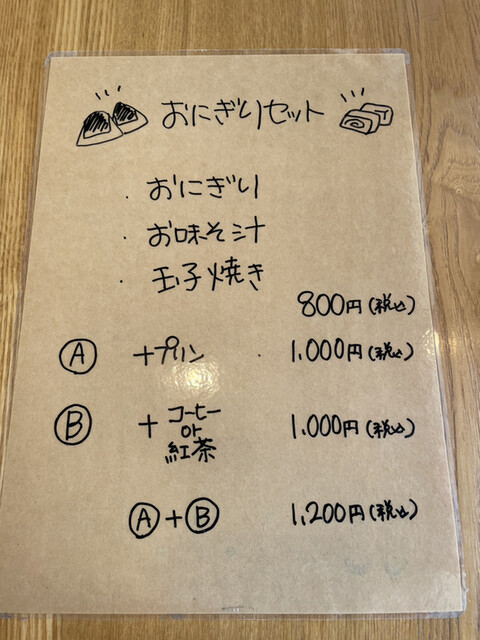 おにぎりセット
・おにぎり
・お味そ汁
・玉子焼き
800円(税込)
Ⓐ +プリン 1,000円(税込)
Ⓑ + コーヒー or 紅茶 1,000円(税込)
Ⓐ+Ⓑ 1,200円(税込)